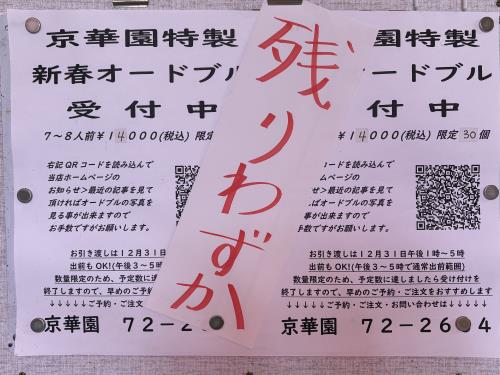 京華園特製
新春オードブル
受付中
7～8人前¥14000(税込) 限定
右記QRコードを読み込んで
当店ホームページの
お知らせ>最近の記事を見て
頂ければオードブルの写真を
見る事が出来ますので
お手数ですがお願いします。
お引き渡しは12月31日
出前もOK!(午後3～5時
数量限定のため、予定数に達
終了しますので、早めのご予
↓↓↓↓↓ご予約・ご注文
京華園 72-2
残りわずか
園特製
オードブル
付中
¥14000(税込) 限定30個
コードを読み込んで
ホームページの
らせ>最近の記事を見て
ばオードブルの写真を
事が出来ますので
ですがお願いします。
お引き渡しは12月31日午後1時～5時
出前もOK!(午後3～5時で通常出前範囲)
数量限定のため、予定数に達しましたら受け付けを
終了しますので、早めのご予約・ご注文をおすすめします
↓↓↓↓↓ご予約・ご注文・お問い合わせは↓↓↓↓↓
京華園 72-26 4